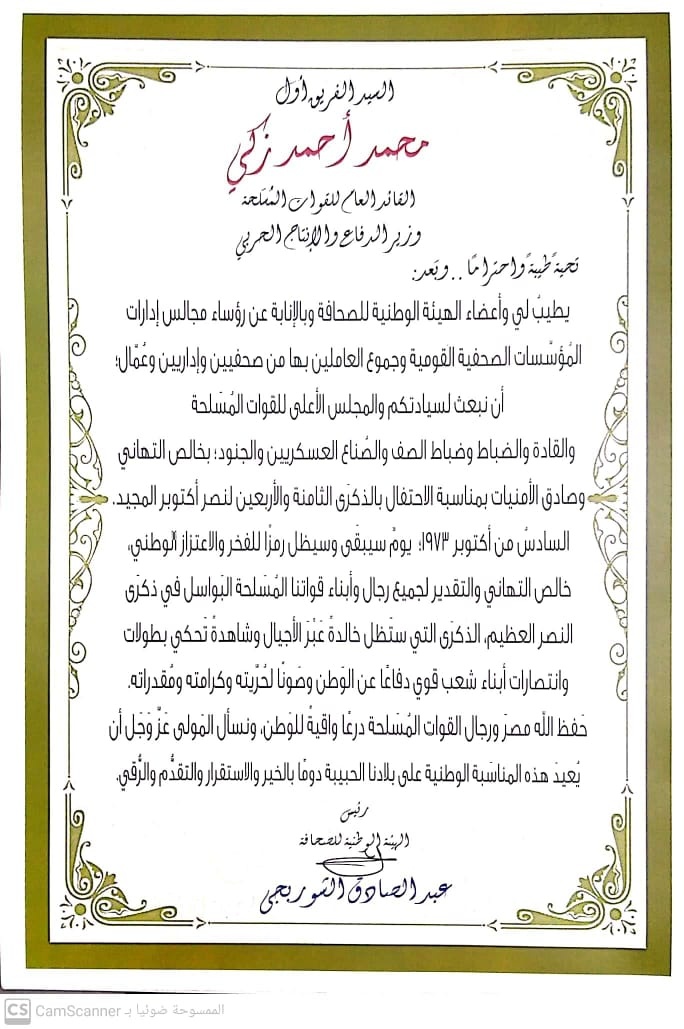 السيد الفريق أول
محمد أحمد زكي
القائد العام للقوات المُسَلحة
وزير الدفاع والإنتاج الحربي
تحيةً طيبةً واحترامًا .. وبَعد:
يطيبُ لي وأعضاء الهيئة الوطنية للصحافة وبالإنابة عن رؤساء مجالس إدارات
المُؤسَّسات الصحفية القومية وجموع العاملين بها من صحفيين وإداريين وعُمَّال؛
أن نبعث لسيادتكم والمجلس الأعلى للقوات المُسَلحة
والقادة والضباط وضباط الصف والصُناع العسكريين والجنود؛ بخالص التهاني
وصادق الأمنيات بمناسبة الاحتفال بالذكرَى الثامنة والأربعين لنصر أكتوبر المجيد.
السادسُ من أكتوبر ١٩٧٣؛ يومٌ سيبقَى وسيظل رمزًا للفخر والاعتزاز الوطني،
خالص التهاني والتقدير لجميع رجال وأبناء قواتنا المُسَلحة البَواسل في ذكرَى
النصر العظيم، الذكرَى التي ستَظل خالدةً عَبْرَ الأجيال وشاهدةً تَحكي بطولات
وانتصارات أبناء شعب قوي دفاعًا عن الوَطن وصَونًا لحُرِّيته وكرامته ومُقدراته.
حَفظ اللّه مصرَ ورجال القوات المُسَلحة درعًا واقيةً للوَطن، ونسأل المَولى عَزَّ وَجَل أن
يُعيدَ هذه المناسَبة الوطنية على بلادنا الحبيبة دومًا بالخير والاستقرار والتقدُّم والرُّقي.
رئيس
الهيئة الوطنية للصحافة
عبد الصادق الشوربجى
CS CamScanner الممسوحة ضوئيا بـ